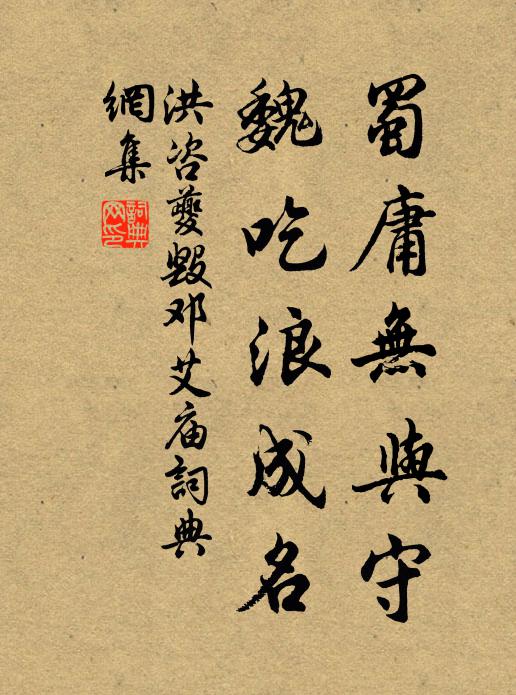 蜀庸無與守
魏吃浪成名
洪咨夔毀邓艾庙詞典
網集
詞典
网印